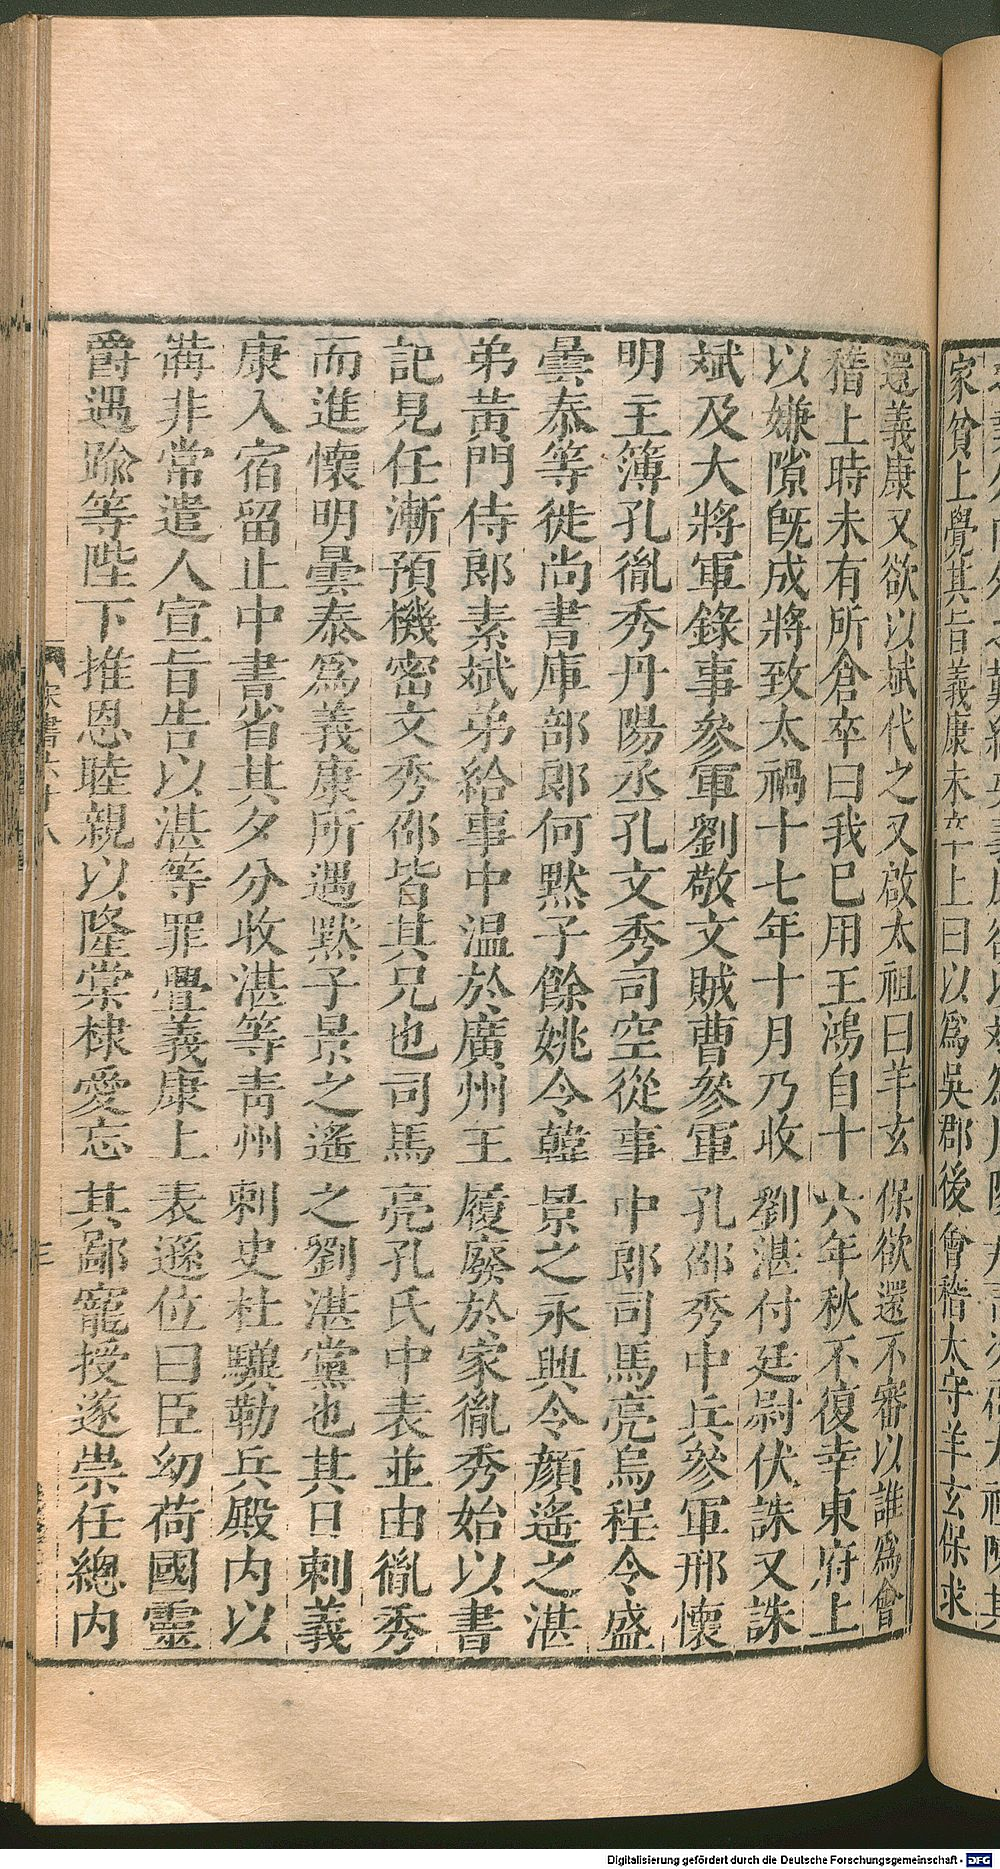 家貧上覺其旨義康未言上曰以爲吳郡後會稽太守羊玄保求
還義康又欲以斌代之又啟太祖曰羊玄保欲還不審以誰爲會
稽上時未有所倉卒曰我已用王鴻自十六年秋不復幸東府上
以嫌隙旣成將致太禍十七年十月乃收劉湛付廷尉伏誅又誅
斌及大將軍錄事參軍劉敬文賊曹參軍孔邵秀中兵參軍邢懷
明主簿孔胤秀丹陽丞孔文秀司空從事中郎司馬亮烏程令盛
曇泰等徙尚書庫部郎何默子餘姚令韓景之永興令顏遙之湛
弟黃門侍郎素斌弟給事中温於廣州王履廢於家胤秀始以書
記見任漸預機密文秀邵皆其兄也司馬亮孔氏中表並由胤秀
而進懷明曇泰爲義康所遇默子景之遙之劉湛黨也其日刺義
康入宿留止中書省其夕分收湛等青州刺史杜驥勒兵殿内以
備非常遣人宣旨告以湛等罪舋義康上表遜位曰臣幼荷國靈
爵遇踰等陛下推恩睦親以隆棠棣愛忘其鄙寵授遂崇任總内
宋書六十八
三
Digitalisierung gefördert durch die Deutsche Forschungsgemeinschaft - DFG